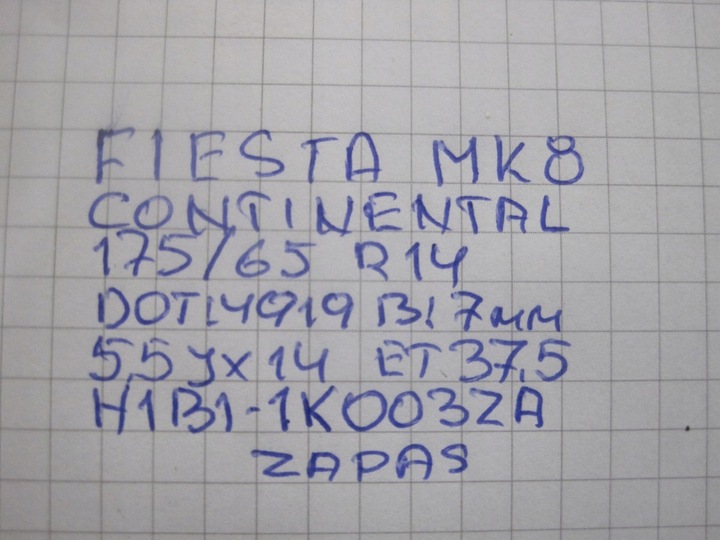 FIESTA MK8
CONTINENTAL
175/65 R14
DOT:4919 B: 7mm
5,5Jx14 ET 37,5
H1B1-1K003ZA
ZAPAS